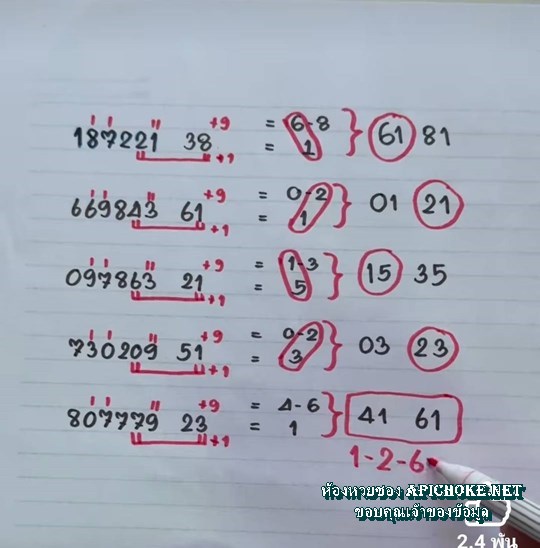 187221 38 +9 = 6-8 } 61 81
+1 = 1
669843 61 +9 = 0-2 } 01 21
+1 = 1
097863 21 +9 = 1-3 } 15 35
+1 = 5
730209 51 +9 = 0-2 } 03 23
+1 = 3
807779 23 +9 = 4-6 } 41 61
+1 = 1
1-2-6
ห้องหวยซอง APICHOKE.NET
ขอบคุณเจ้าของข้อมูล
2.4 พัน